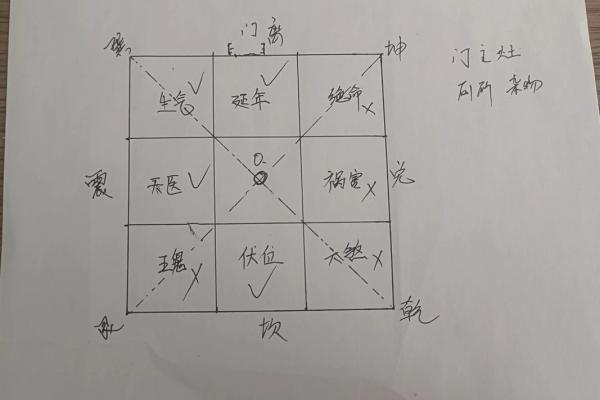 门 离
巽
坤
生气 延年 绝命
门主灶
厕所 杂物
震
天医
祸害
兑
五鬼 伏位 六煞
艮
坎
乾